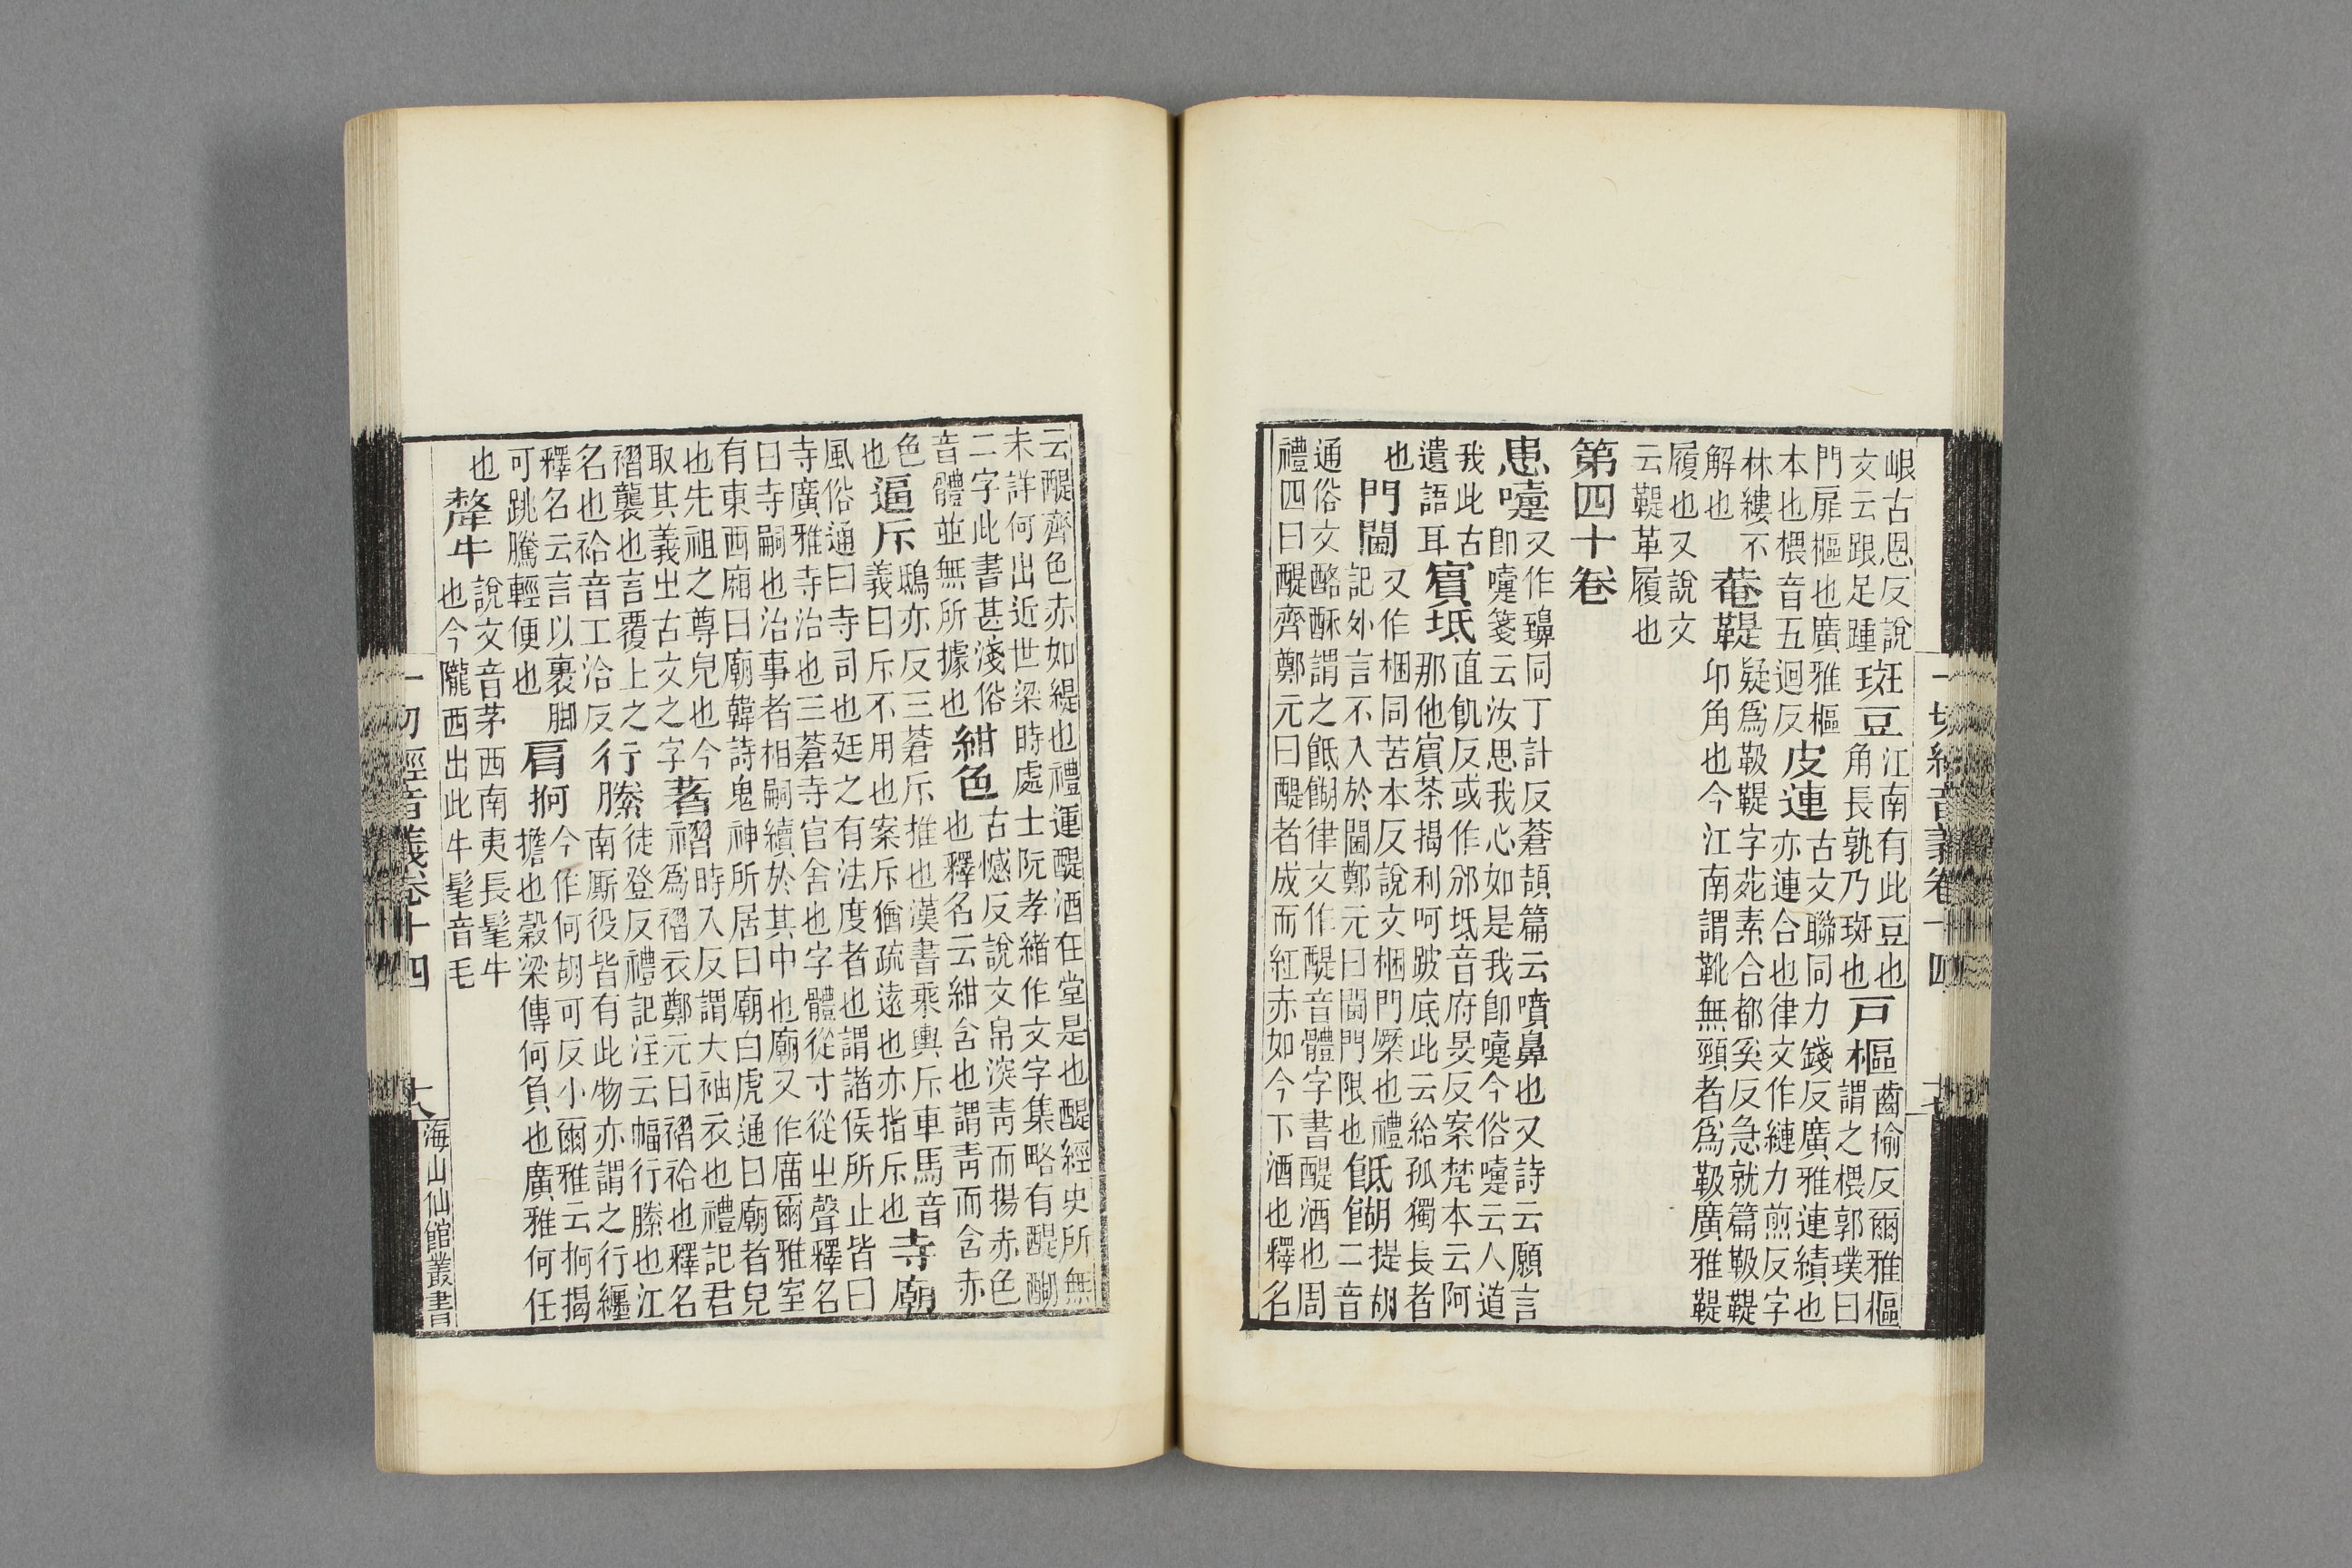 峎古恩反說文云跟足踵斑豆江南有此豆也角長孰乃斑也戸樞齒榆反爾雅樞謂之椳郭璞曰
門扉樞也廣雅樞本也椳音五迴反皮連古文聯同力錢反廣雅連續也亦連合也律文作縺力煎反字
林縷不解也菴鞮疑爲靸鞮字苑素合都奚反急就篇靸鞮卬角也今江南謂靴無頸者爲靸廣雅鞮
履也又說文云鞮革履也
第四十卷
患嚏又作同丁計反蒼頡篇云噴鼻也又詩云願言即嚏箋云汝思我心如是我卽嚏今俗嚏云人道
我此古遺語耳賓坻直飢反或作邠坻音府旻反案梵本云阿那他賓荼揭利呵跛底此云給孤獨長者
也門閫又作梱同苦本反說文梱門橜也禮記外言不入於閫鄭元曰閫門限也䬫餬提胡二音
通俗文酪酥謂之䬫餬律文作醍音體字書醍酒也周禮四曰醍齊鄭元曰醍者成而紅赤如今下酒也釋名
一切經音義卷十四
十七
云醍齊色赤如緹也禮運醍酒在堂是也醍經史所無未詳何出近世梁時處士阮孝緒作文字集略有醍醐
二字此書甚淺俗音體並無所據也紺色古憾反說文帛深青而揚赤色也釋名云紺含也謂青而含赤
色也逼斥鴟亦反三蒼斥推也漢書乘輿斥車馬音義曰斥不用也案斥猶疏遠也亦指斥也寺廟
風俗通曰寺司也廷之有法度者也謂諸侯所止皆曰寺廣雅寺治也三蒼寺官舍也字體從寸從㞢聲釋名
曰寺嗣也治事者相嗣續於其中也廟又作庿爾雅室有東西廂曰廟韓詩鬼神所居曰廟白虎通曰廟者皃
也先祖之尊皃也今取其義㞢古文之字著褶時入反謂大袖衣也禮記君爲褶衣鄭元曰褶袷也釋名
褶襲也言覆上之名也袷音工洽反行縢徒登反禮記注云幅行縢也江南厮役皆有此物亦謂之行纏
釋名云言以裹脚可跳騰輕便也肩抲今作何胡可反小爾雅云抲揭擔也穀梁傳何負也廣雅何任
也犛牛說文音茅西南夷長髦牛也今隴西出此牛髦音毛
一切經音義卷十四
十八
海山仙館叢書